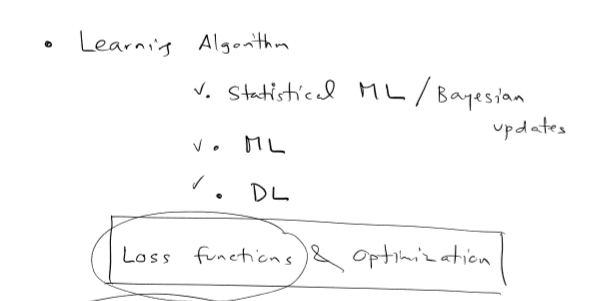 • Learning Algorithm
✓. Statistical ML / Bayesian
updates
✓. ML
✓. DL
Loss functions & optimization